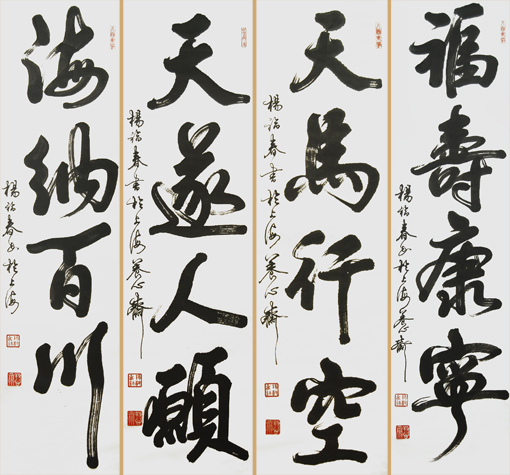 福壽康寧
楊詒春书於上海養心齋
天馬行空
楊詒春書於上海養心齋
天遂人願
楊詒春書於上海養心齋
海納百川
楊詒春书於上海